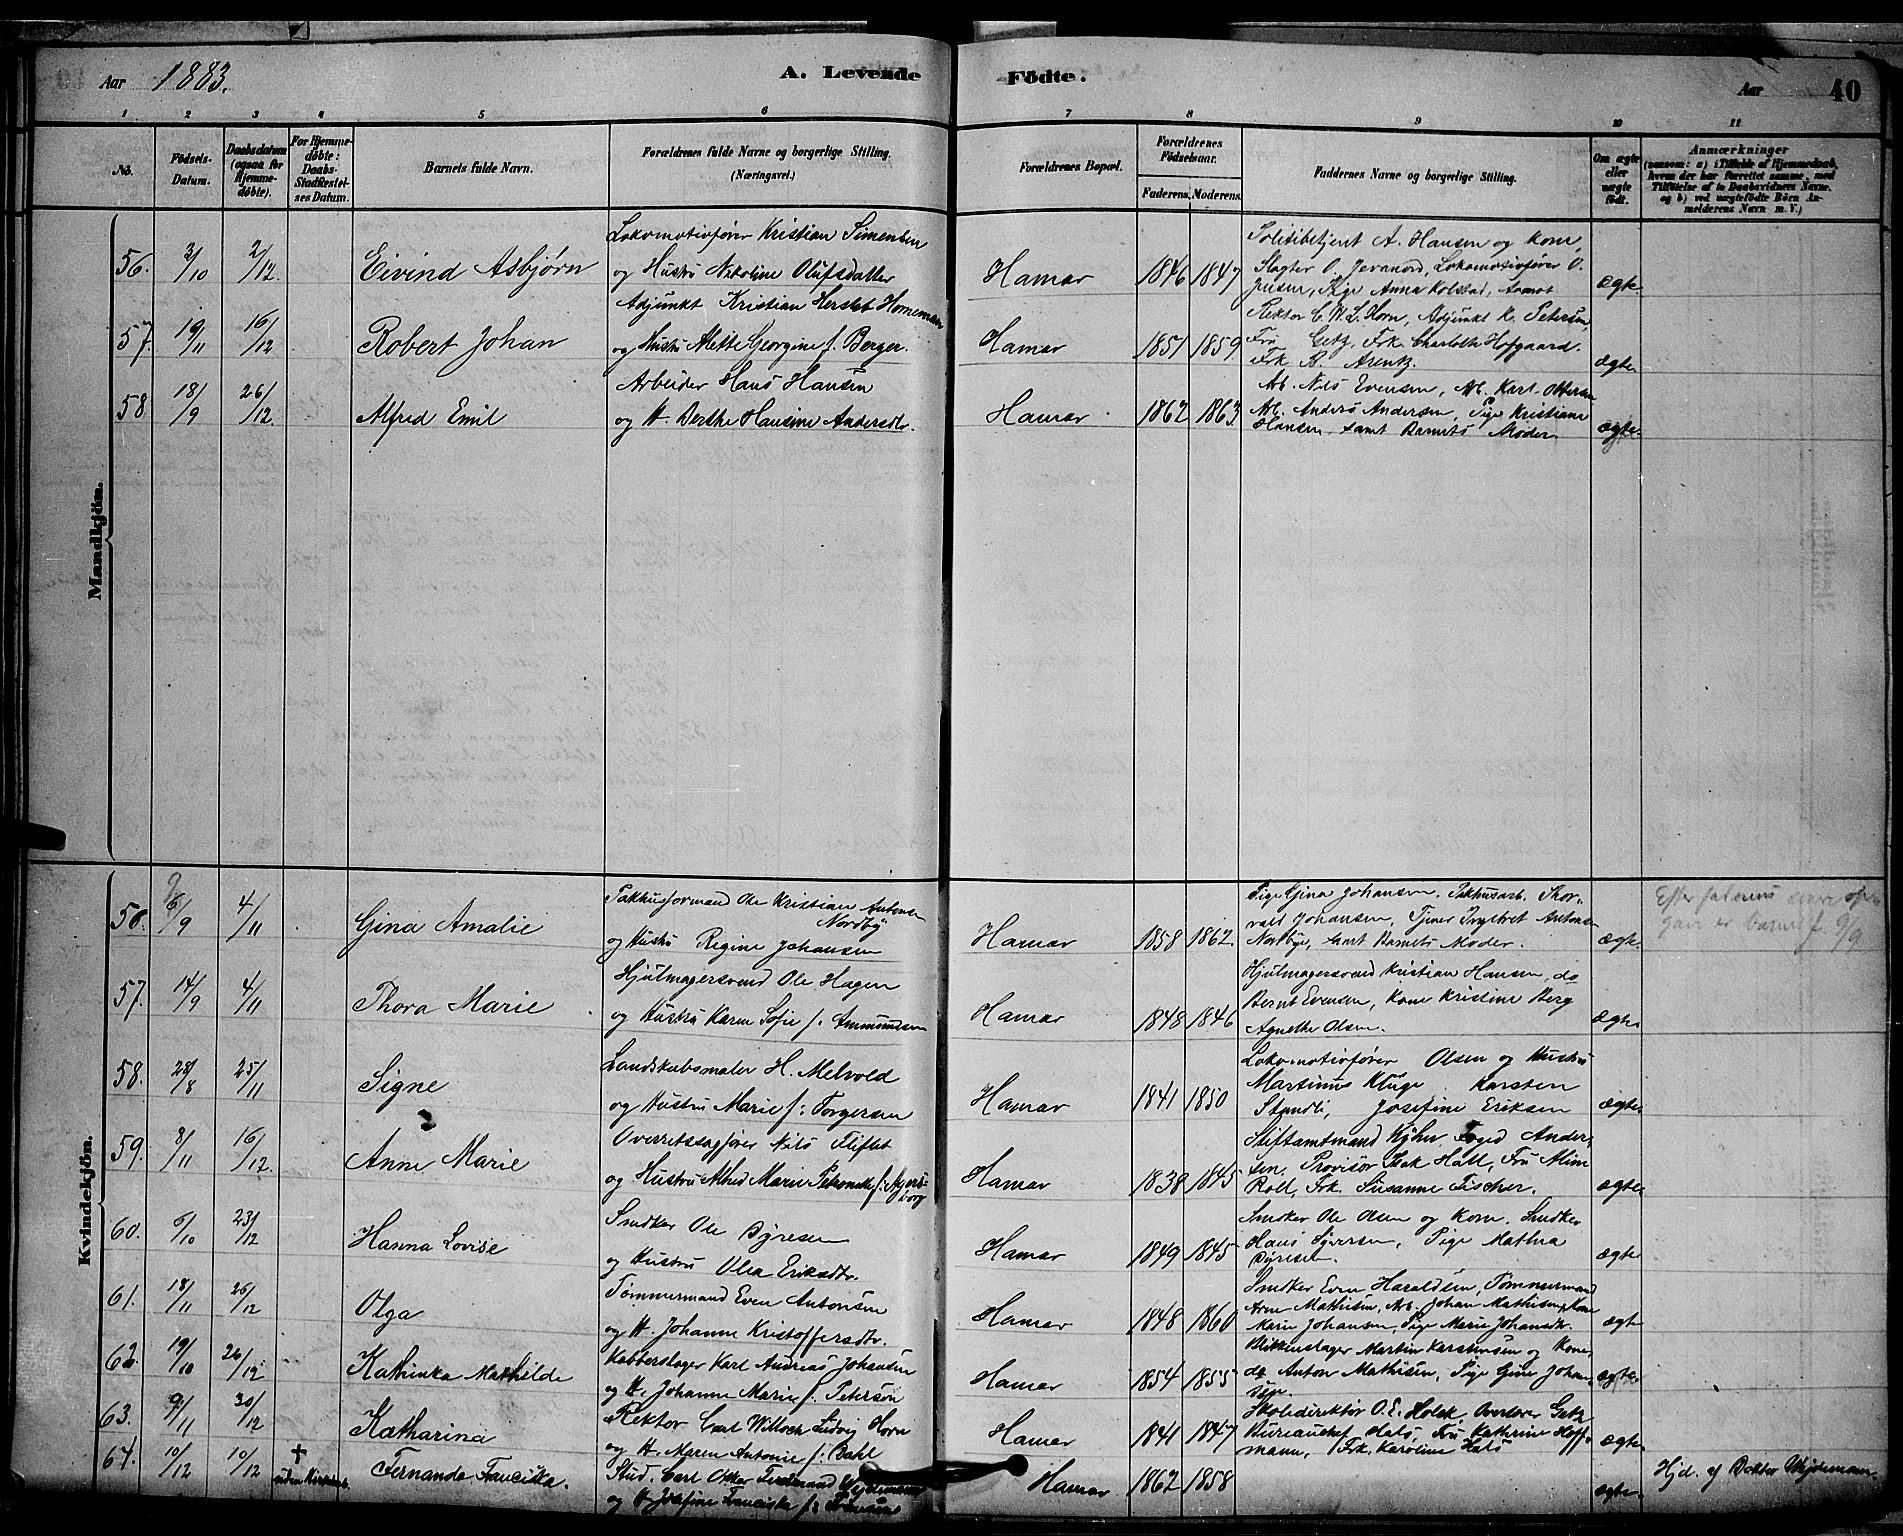 Aar 1883.
A. Levende Födte.
Aar 40
1 2 3 4 5 6 7 8 9 10 11
No.
Födsels-Datum.
Daabsdatum (ogsaa for Hjemmedöbte).
For Hjemmedöbte: Daabs-Stadfæstelses Datum.
Barnets fulde Navn.
Forældrenes fulde Navne og borgerlige Stilling.
(Næringsvei.)
Forældrenes Bopæl.
Forældrenes Födselsaar.
Faderens. Moderens.
Faddernes Navne og borgerlige Stilling.
Om ægte eller uægte födt.
Anmærkninger
(saasom: a) i Tilfælde af Hjemmedaab,
hvem der har forrettet samme, med
Tilföielse af to Daabsvidners Navne,
og b) ved uægtefödte Börn An-
melderens Navn m. V.)
Mandkjön.
56. 3/10 2/12 Eivind Asbjørn
Lokomotivfører Kristian Simensen
og Hustru Nikoline Olufsdatter
Hamar 1846 1847
Politibetjent A. Hansen og Kone,
Slagter O. Lokomotivfører O.
Pige Anna Kolstad,
ægte
57. 19/11 16/12 Robert Johan
Adjunkt Kristian Herslet Hornemann
og Hustru Mette Georgine f. Berger.
Hamar 1851 1859
Rektor C. W. L. Horn, Adjunkt K. Petersen,
Fru Getz, Frk. Charlotte Hofgaard.
Frk. B. Arentz.
ægte
58. 18/9 26/12 Alfred Emil
Arbeider Hans Hansen
og H. Berthe Hansine Andersdtr.
Hamar 1862 1863
Arb. Nils Evensen, Arb. Karl Ottersen
Arb. Anders Andersen, Pige Kristiane
Hansen samt Barnets Moder.
ægte.
Kvindekjön.
56. 6/9 4/11 Gina Amalie
Pakhusformand Ole Kristian Antonsen
Nordby
og Hustru Regine Johansen
Hamar 1858 1862
Pige Gina Johansen. Pakhusarb. Thor-
vald Johansen, Tjener Ingebret Antonsen
Nordbye, samt Barnets Moder.
ægte.
Efter faderens
barnet f. 9/9
57. 14/9 4/11 Thora Marie
Hjulmagersvend Ole Hagen
og Hustru Karen Sofie f. Ammundsen
Hamar 1848 1846
Hjulmagersvend Kristian Hansen, do
Bernt Evensen, Kone Kristine Berg
Agnethe Olsen.
ægte
58. 28/8 25/11 Signe
Landskabsmaler H. Melvold
og Hustru Marie f. Torgersen
Hamar 1841 1850
Lokomotivfører Olsen og Hustru
Martinus Kluge. Karsten
Josefine Eriksen
ægte
59. 8/11 16/12. Anne Marie
Overretssagfører Nils Fliflet
og Hustru Marie
Hamar 1838 1845
Stiftamtmand Kjhn, Foged Ander-
sen, Provisør Isak Hall, Fru
Roll, Frk. Susanne Fischer.
ægte
60. 6/10 23/12 Hanna Lovise
Snedker Ole Dyresen
og Hustru Olea Eriksdtr.
Hamar 1849 1845
Snedker Ole Olsen og Kone. Snedker
Hans Pige Mathea
Dyresen.
ægte
61. 18/11 26/12 Olga
Tømmermand Even Antonsen
og H. Johanne Kristoffersdtr.
Hamar 1848 1860
Snedker Even Haraldsen, Tømmermand
Arne Mathisen, Arb. Johan Mathisen, Kone
Marie Johansen, Pige Marie Johansdtr.
ægte
62. 19/10 26/12 Kathinka Mathilde
Kobberslager Karl Andreas Johansen
og H. Johanne Marie f. Peterson
Hamar 1854 1855
Blikkenslager Martin Karstensen og Kone,
do Anton Mathisen, Pige Gine Johan-
sen.
ægte
63. 9/11 30/12 Katharina
Rektor Carl Willoch Ludvig Horn
og H. Maren Antonie f. Dahl
Hamar 1841 1847
Skoledirektør O. E. Holck, Overlærer Getz
Bureauchef Hals, Fru Kathrine Hoff-
mann, Frk. Karoline Hals
ægte
64. 10/12 10/12 + Fernanda Franciska.
Stud. Carl Otto Ferdinand Wejdemann
og H. Josefine Franciska f.
Hamar 1862 1858
ægte.
Hjd. af Doktor Wejdemann.